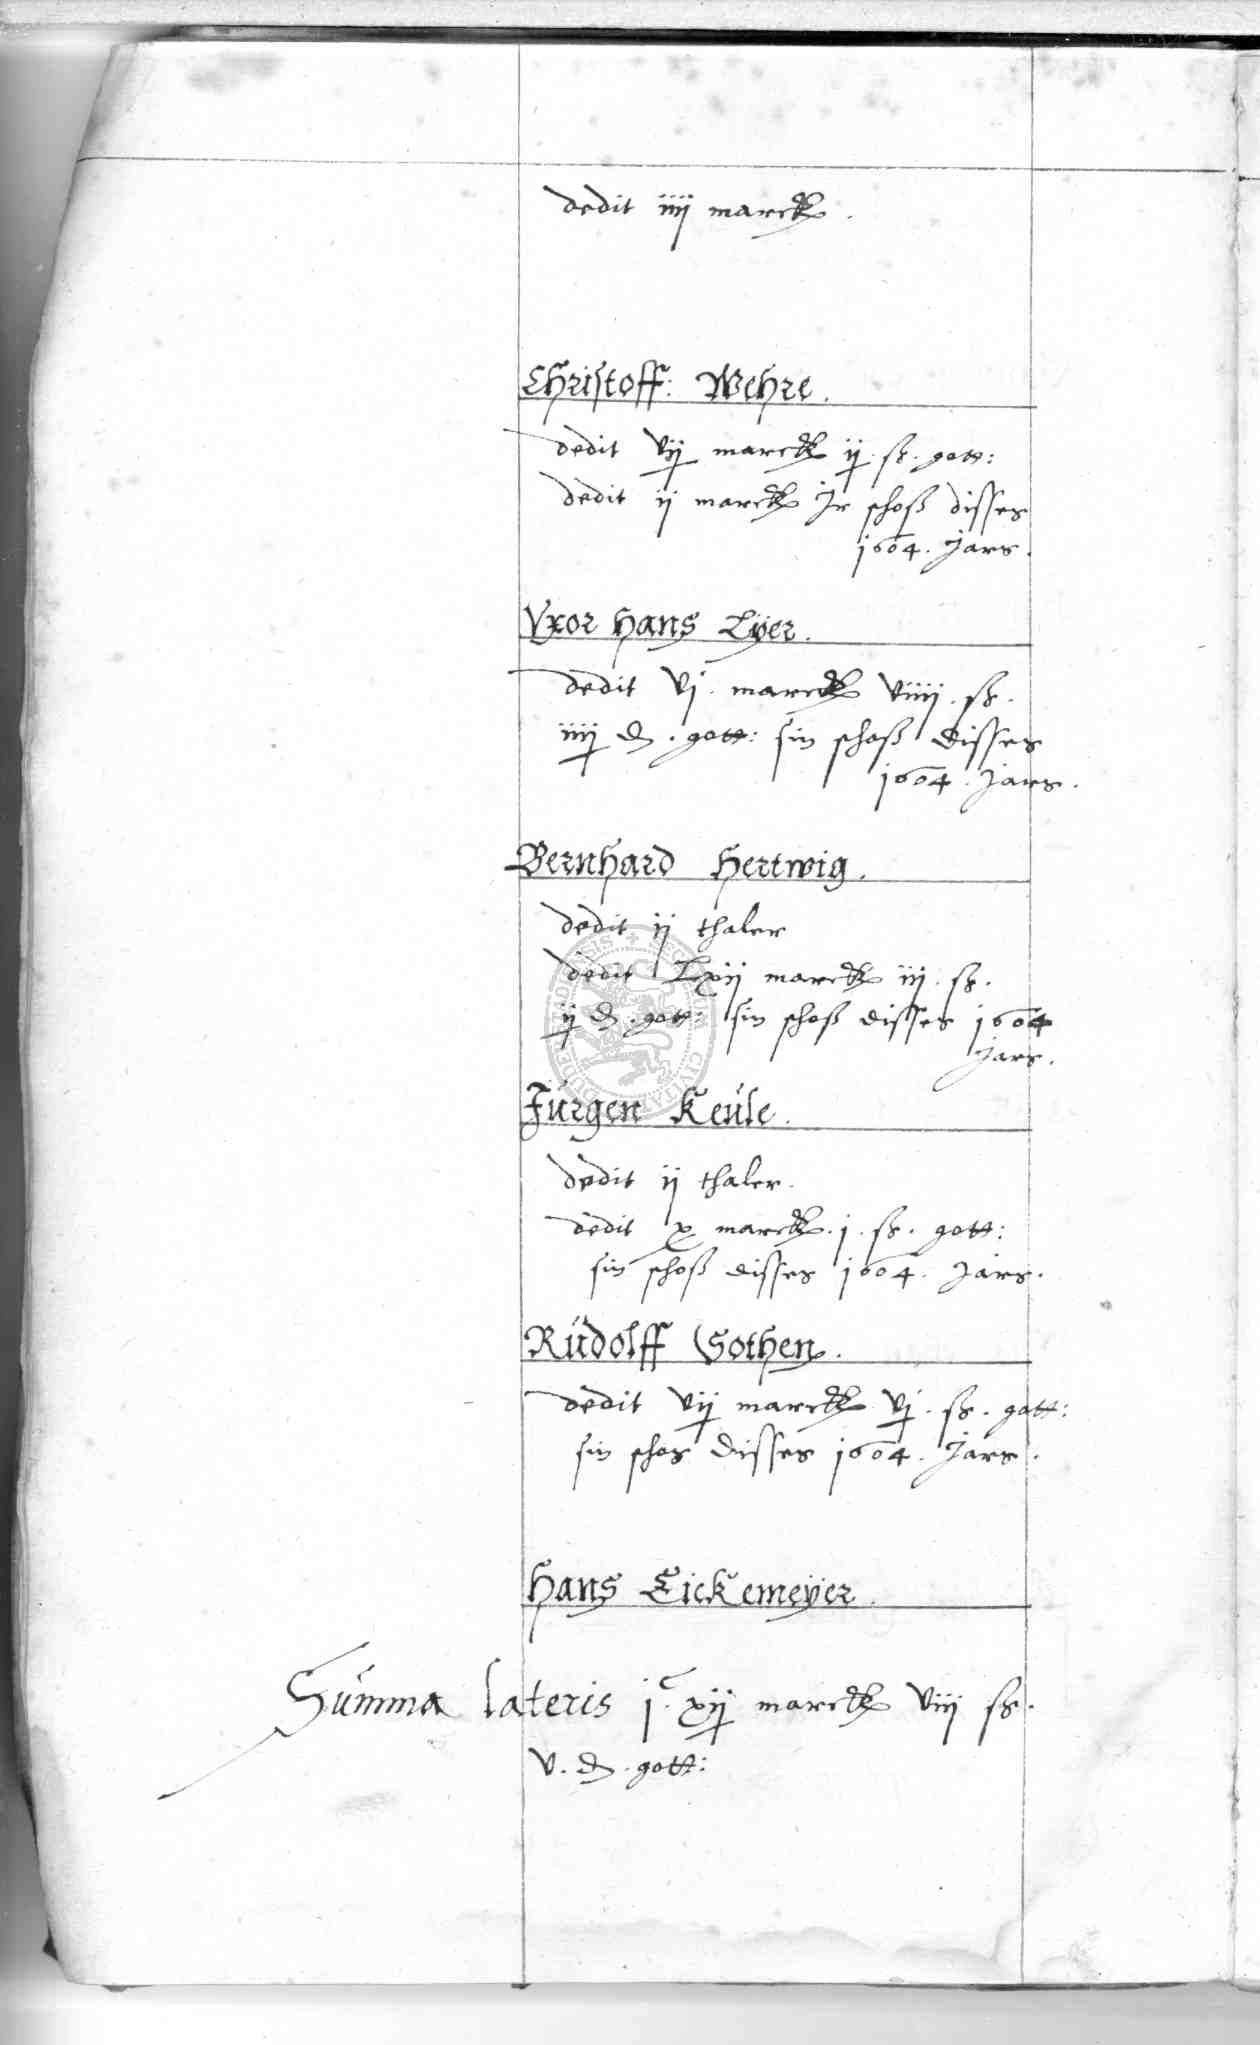 dedit iiij marck.
Christoff: Wehre.
dedit vij marck ij. ß. gott:
dedit ij marck Jr schoß disses
1604. Jars.
Vxor Hans Lÿer.
dedit vj. marck viiij. ß.
iiij ₰. gott: sin schoß disses
1604. Jars.
Bernhard Hertwig.
dedit ij thaler
dedit Lxij marck iij. ß.
ij ₰. gott: sin schoß disses 1604
Jars.
Jürgen Keüle.
dedit ij thaler.
dedit x marck. j. ß. gott:
sin schoß disses 1604. Jars.
Rüdolff Gothen.
dedit vij marck vj. ß. gott:
sin schos disses 1604. Jars.
Hans Eickemeÿer.
Summa lateris jᶜ. xij marck viij ß.
v. ₰. gott: